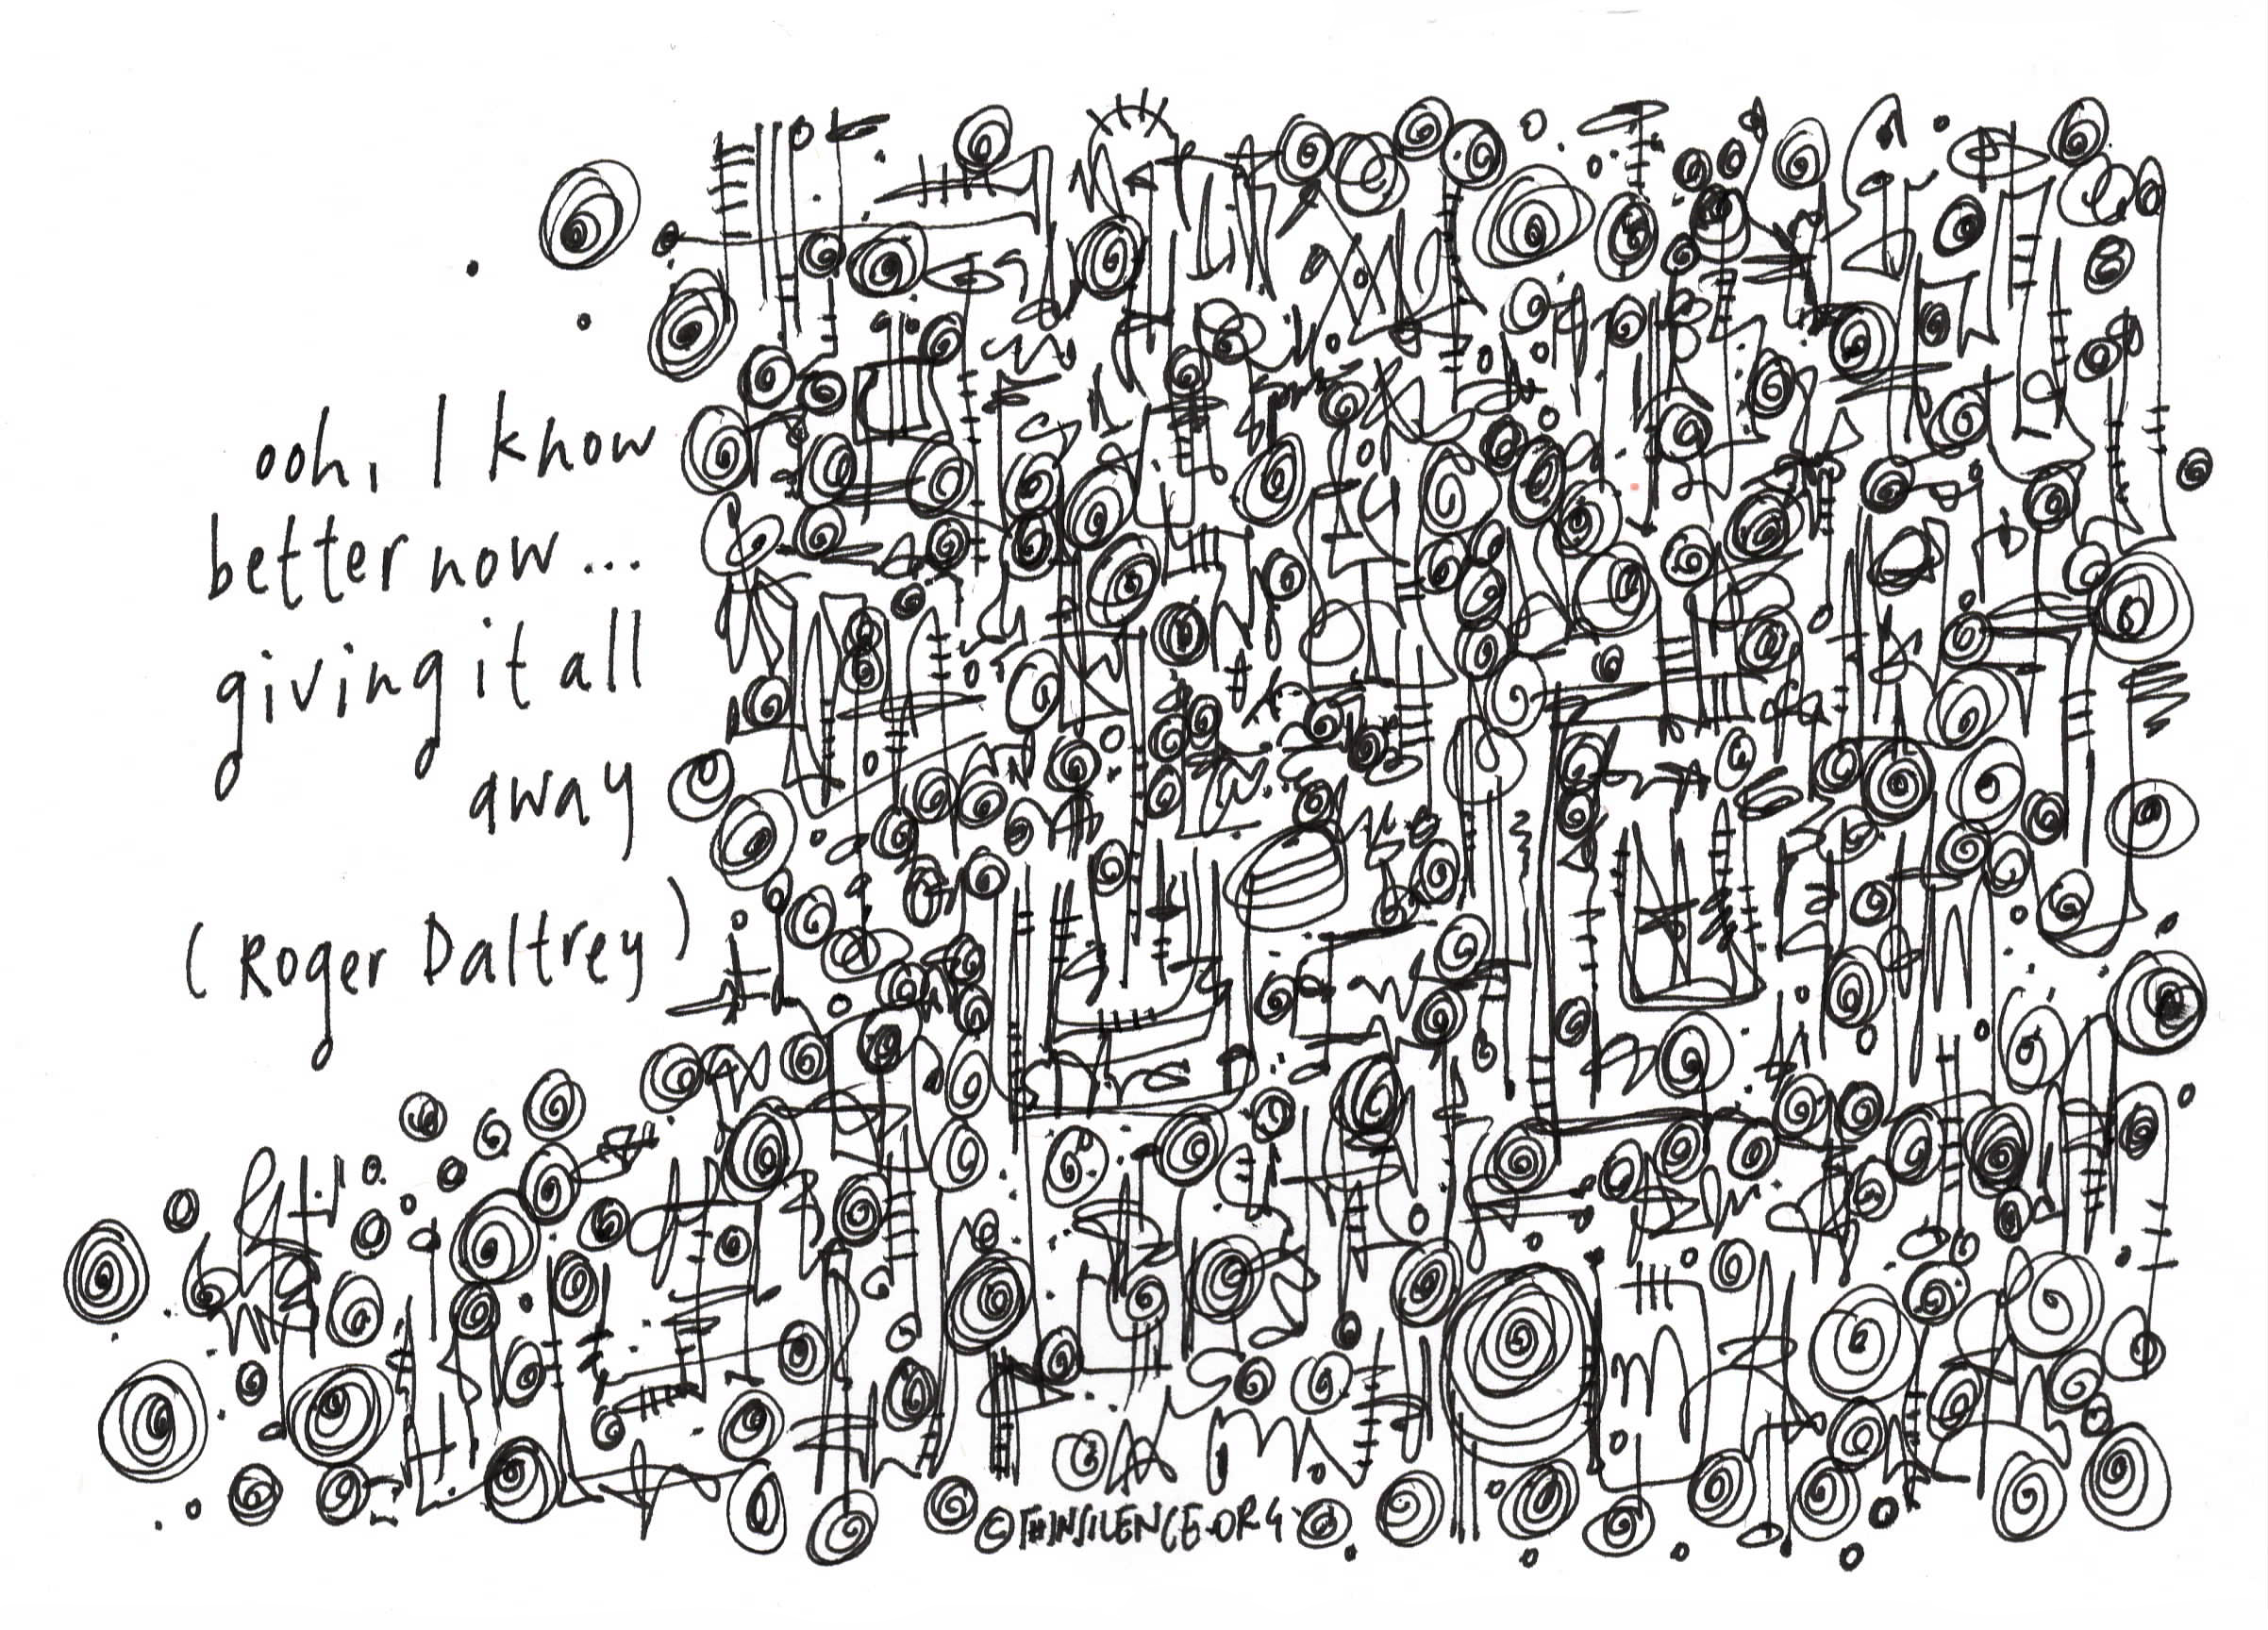 ooh, I know
better now...
giving it all
away
(Roger Daltrey)